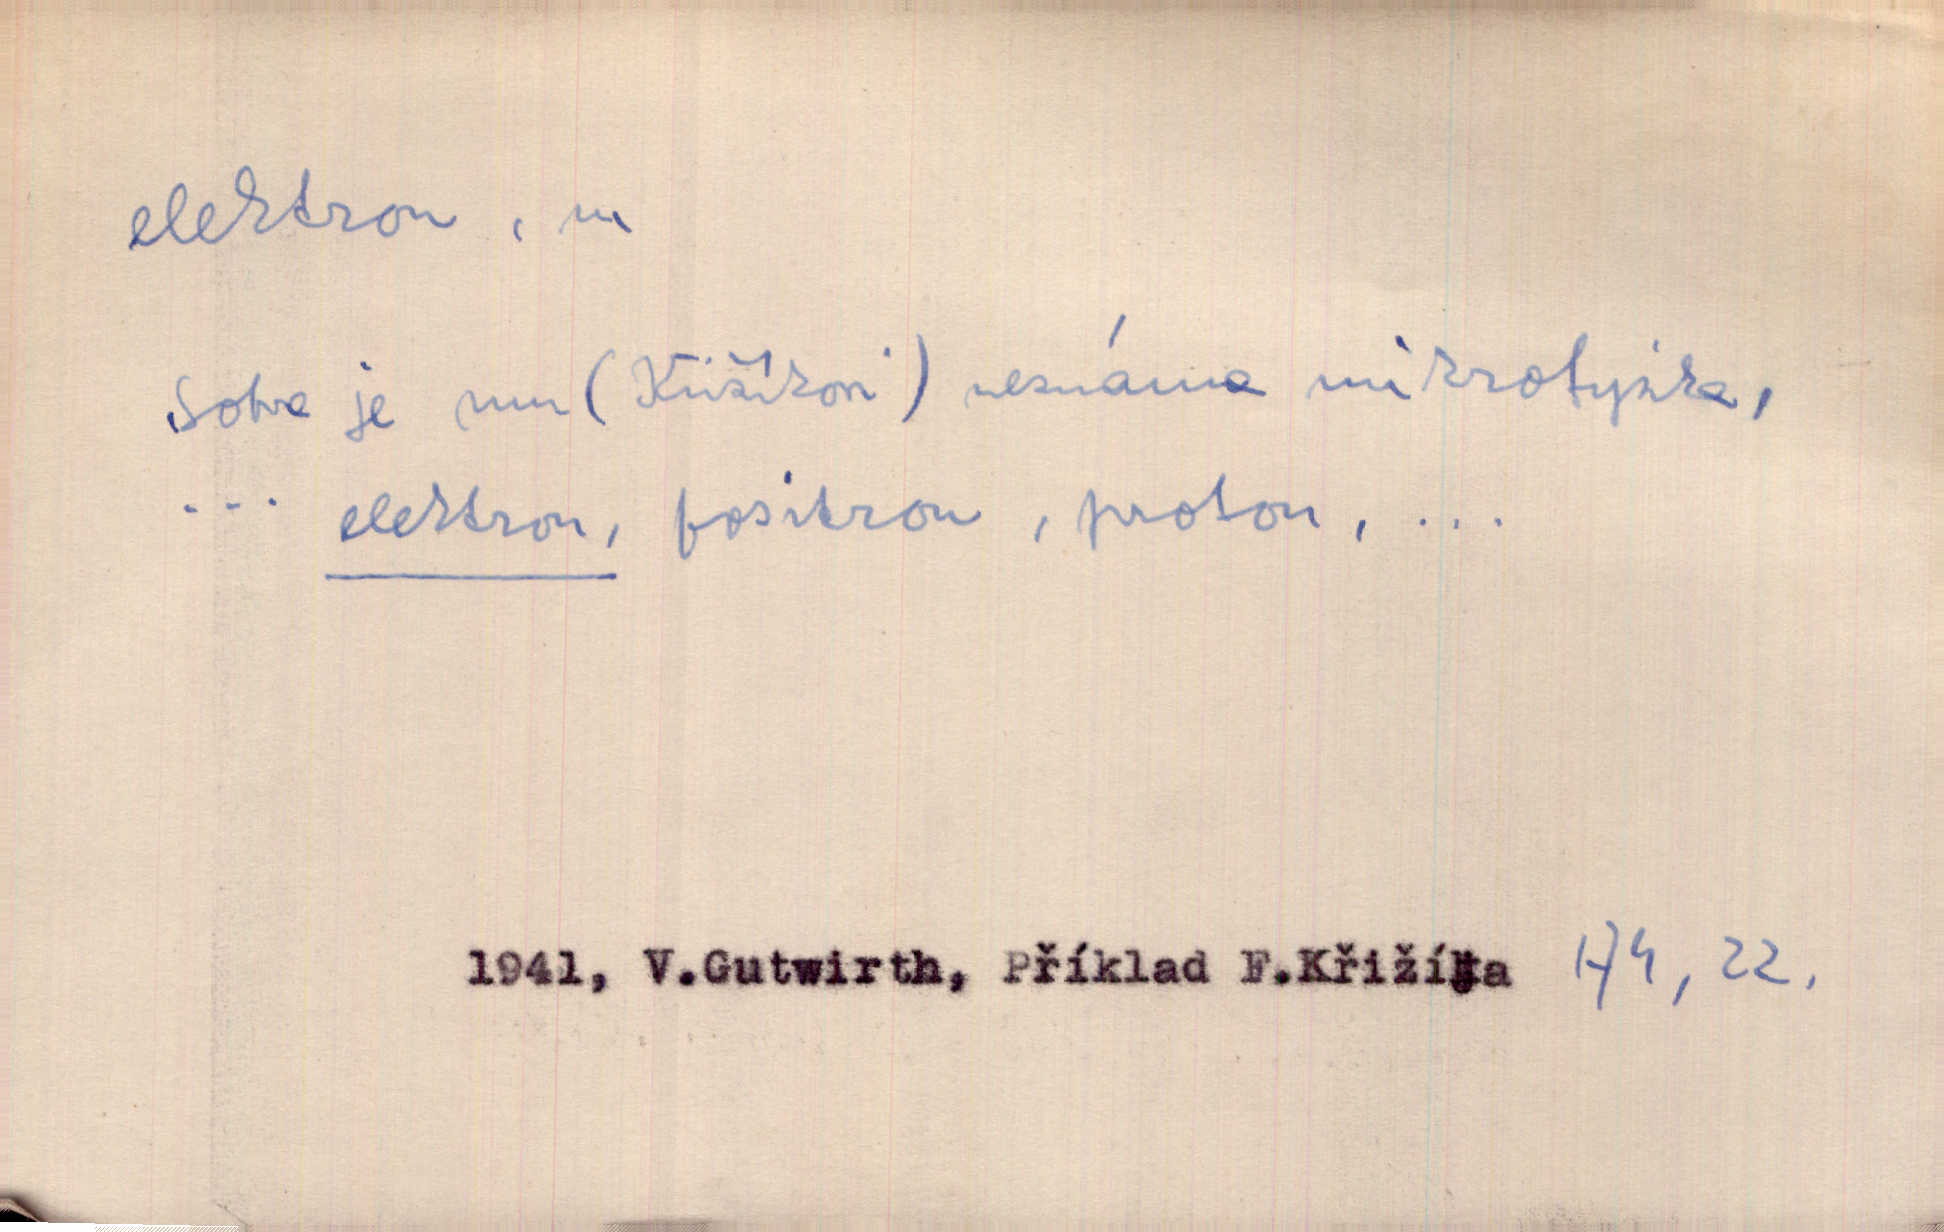 elektron, m
Sotva je mu (Křižíkovi) neznáma mikrofysika,
... elektron, positron, proton, ...
1941, V.Gutwirth, Příklad F.Křižíka 174, 22.